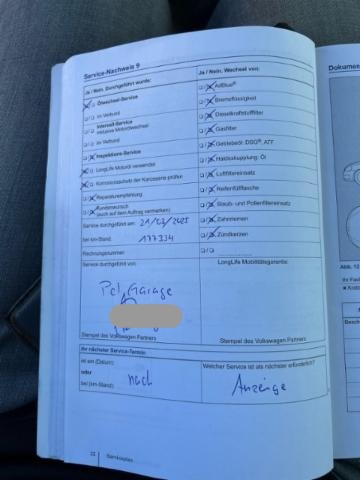 Service-Nachweis 9
Ja / Nein, Durchgeführt wurde:
Ölwechsel-Service
im Verbund
Intervall-Service
inklusive Motorölwechsel
im Verbund
Inspektions-Service
LongLife Motoröl verwendet
Korrosionsschutz der Karosserie prüfen
Reparaturempfehlung
(auch auf dem Auftrag vermerken)
Service durchgeführt am: 21/03/2025
bei km-Stand: 177334
Rechnungsnummer:
Service durchgeführt von:
Garage
Stempel des Volkswagen Partners
Ja / Nein, Wechsel von:
AdBlue®
Bremsflüssigkeit
Dieselkraftstofffilter
Gasfilter
Getriebeöl: DSG®, ATF
Haldexkupplung: Öl
Luftfiltereinsatz
Reifenfüllflasche
Staub- und Pollenfiltereinsatz
Zahnriemen
Zündkerzen
LongLife Mobilitätsgarantie:
Stempel des Volkswagen Partners
Ihr nächster Service-Termin:
ist am (Datum):
oder
bei (km-Stand):
nach
Welcher Service ist als nächster erforderlich?
Anzeige
22 Serviceplan
Dokumen
Abb. 12